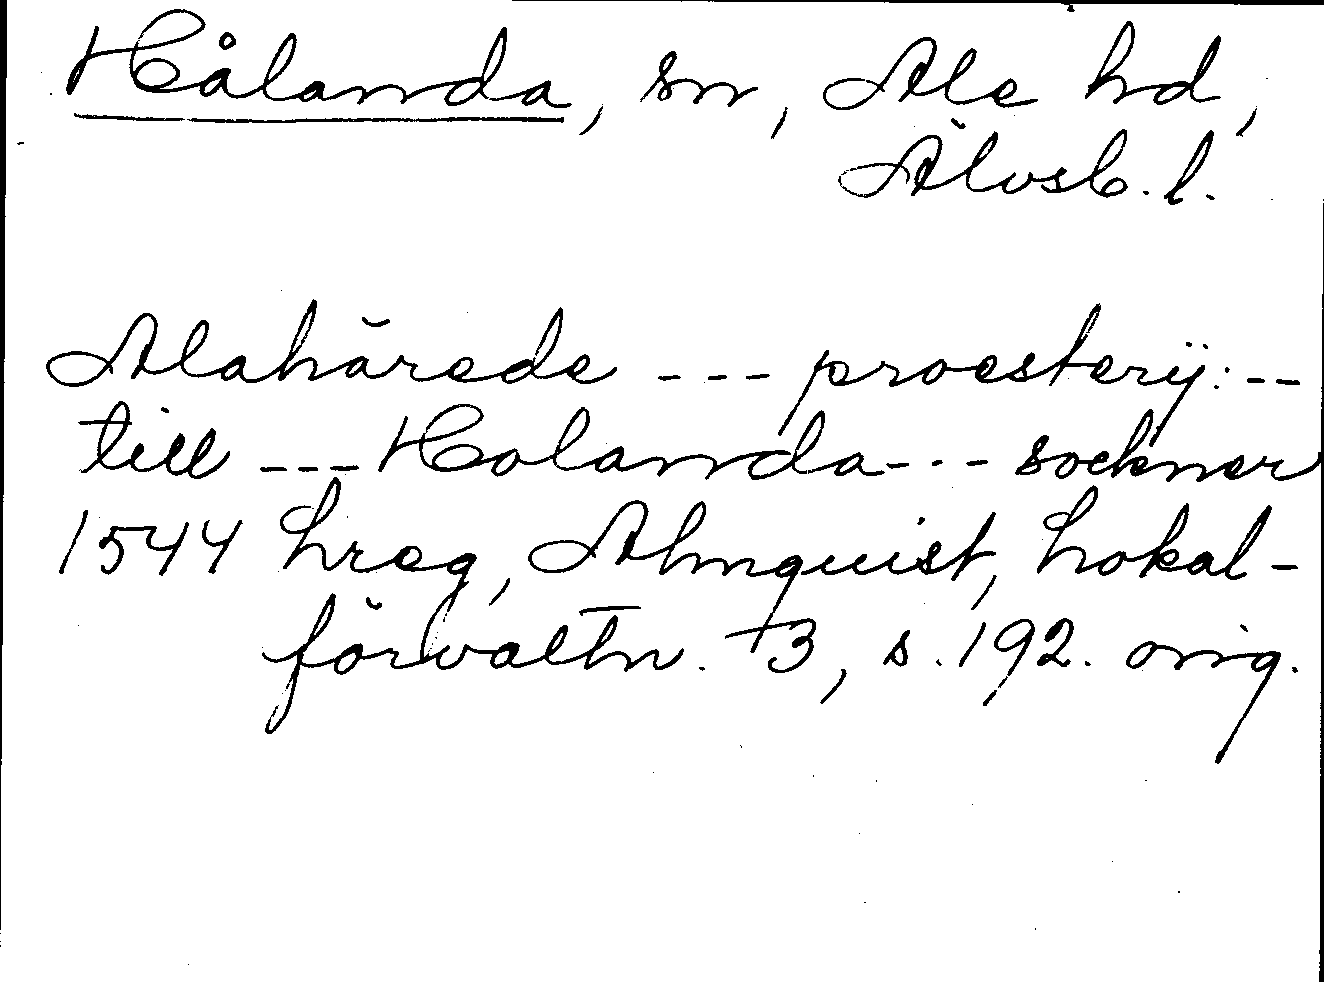 Hålanda, sn, Ale hd,
Älvsb. l.
Alahärede --- proesterij: --
till --- Holanda --- sockner
1544 Lreg, Almquist, Lokal-
förvaltn. 3, s. 192. orig.